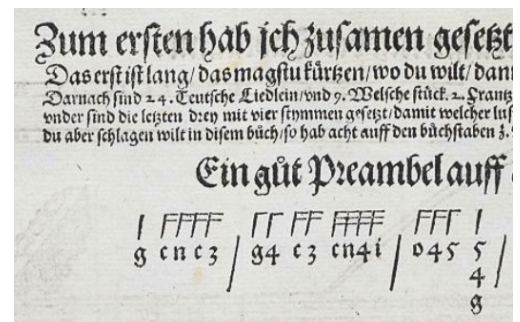 Zum ersten hab jch zusamen gesetzt
Das erst ist lang/ das magstu kürtzen/ wo du wilt/ dann
Darnach sind 24. Teutsche Liedlein/vnd 9. Welsche stück. 2. Frantz
vnder sind die letzten drey mit vier stymmen gesetzt/damit welcher lus
du aber schlagen wilt in disem bůch/so hab acht auff den bůchstaben z.
Ein gůt Preambel auff
g c n c z g 4 c z c n 4 i o 4 5 5
4
g